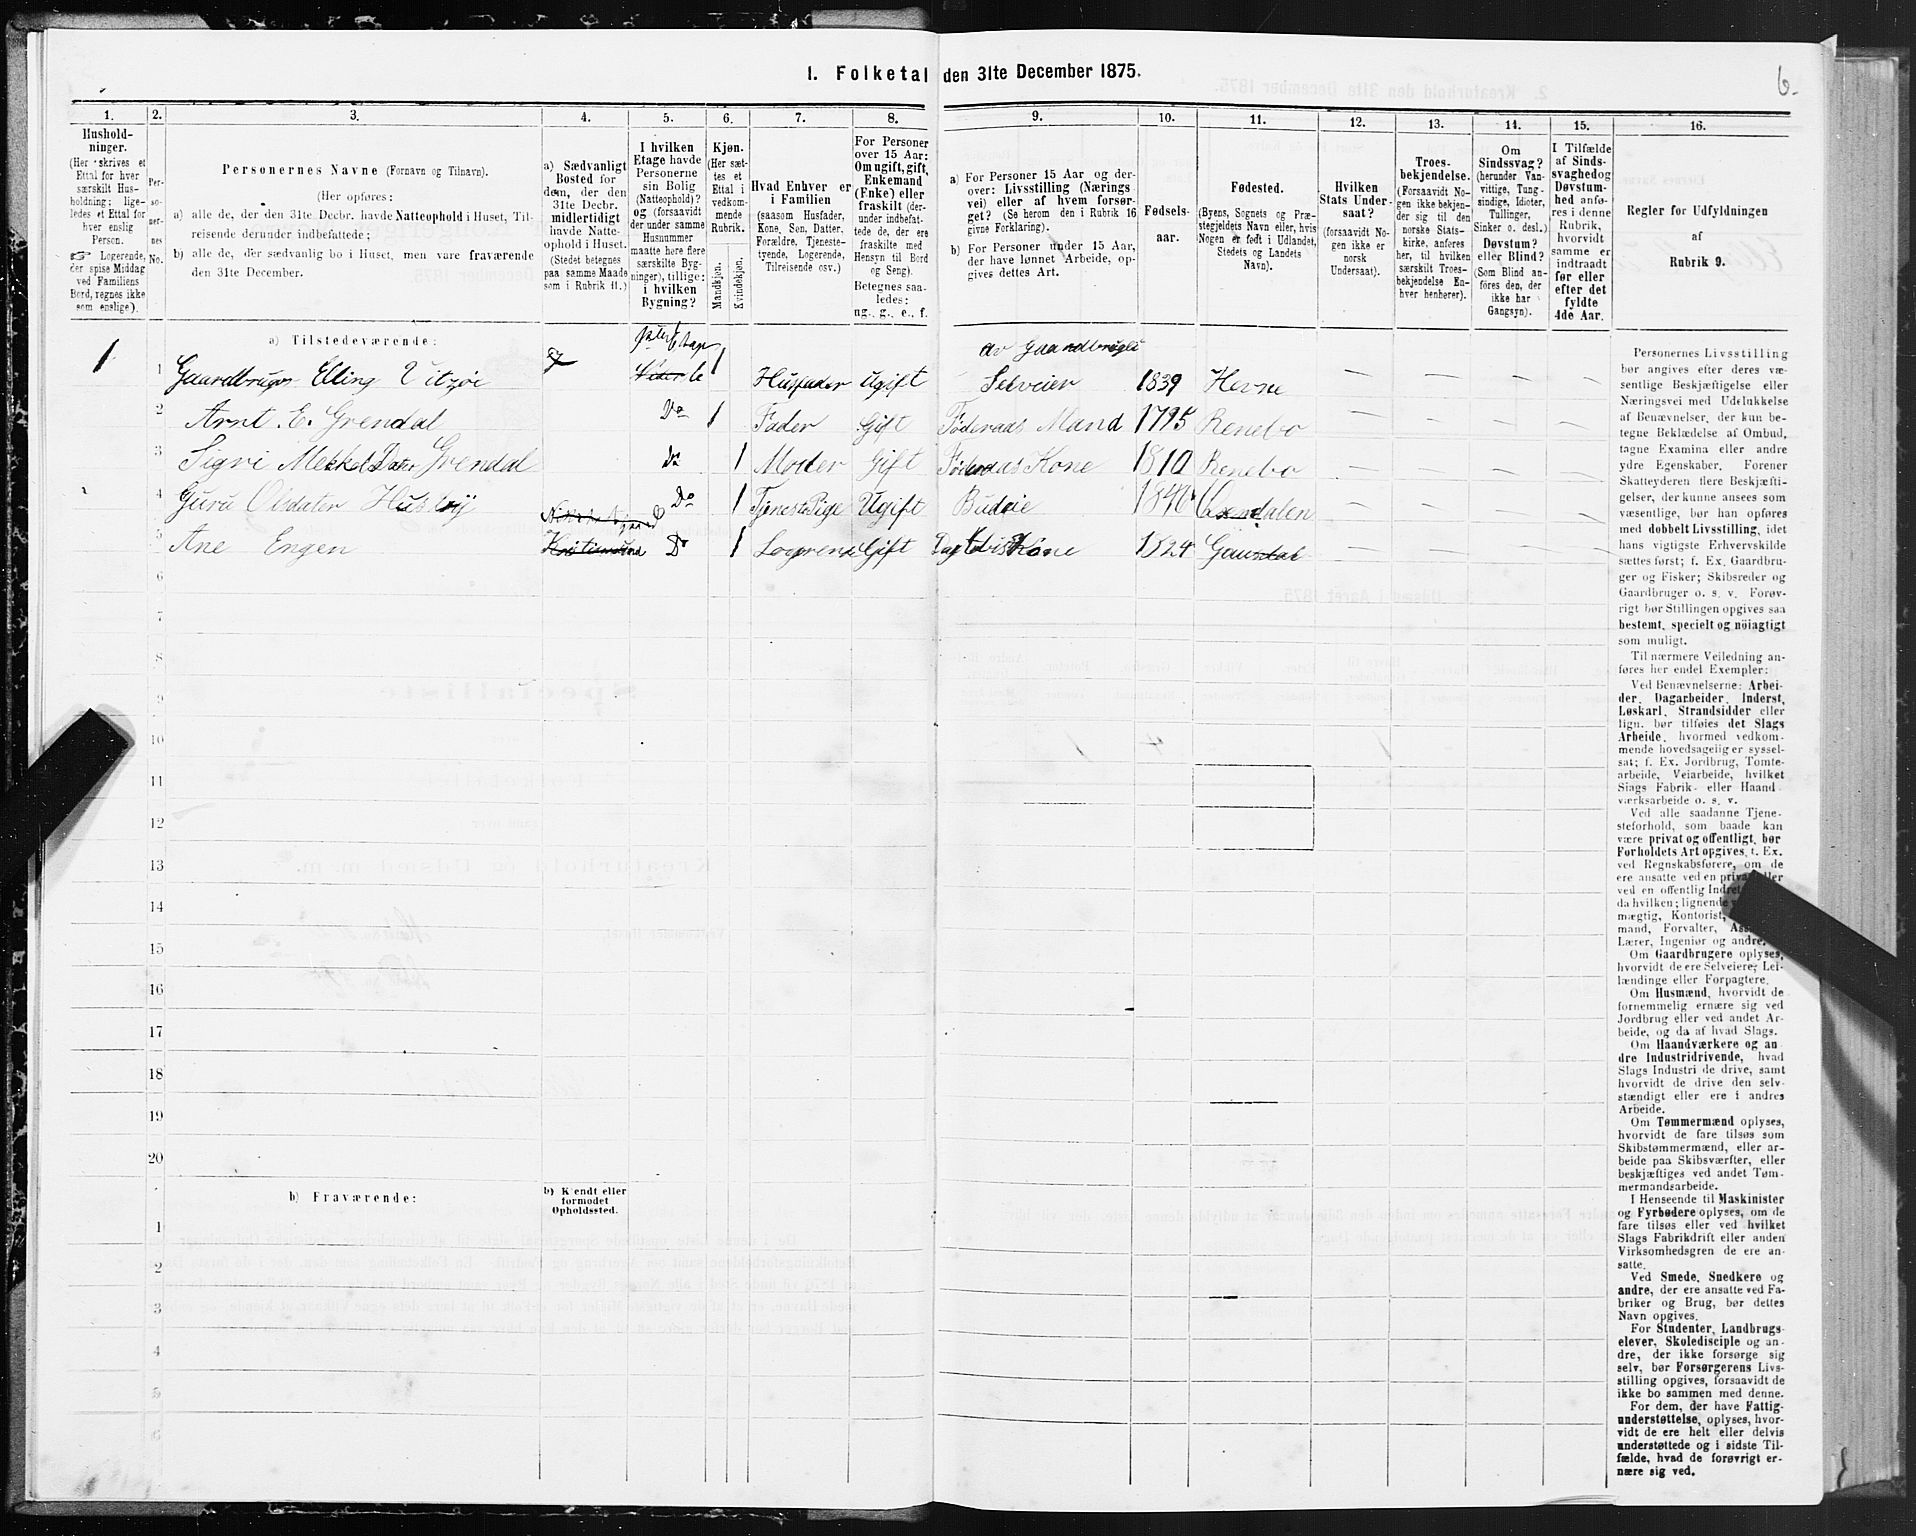 1. Folketal den 31te December 1875.
6.
1. 2. 3. 4. 5. 6. 7. 8. 9. 10. 11. 12. 13. 14. 15. 16.
Hushold-
ninger.
(Her skrives et
Ettal for hver
særskilt Hus-
holdning; lige-
ledes et Ettal for
hver enslig
Person.
☞ Logerende,
der spise Middag
ved Familiens
Bord, regnes ikke
som enslige).
Per-
so-
ner-
nes
No.
Personernes Navne (Fornavn og Tilnavn).
(Her opføres:
a) alle de, der den 31te Decbr. havde Natteophold i Huset, Til-
reisende derunder indbefattede;
b) alle de, der sædvanlig bo i Huset, men vare fraværende
den 31te December.
a) Sædvanligt
Bosted for
dem, der den
31te Decbr.
midlertidigt
havde Natte-
ophold i Huset.
(Stedet betegnes
paa samme Maade
som i Rubrik 11.)
I hvilken
Etage havde
Personerne
sin Bolig
(Natteophold)?
og (forsaavidt
der under samme
Husnummer
maatte here flere
særskilte Byg-
ninger), tillige:
i hvilken
Bygning?
Kjøn.
(Her sæt-
tes et
Ettal i
vedkom-
mende
Rubrik.
Mandkjøn.
Kvindekjøn.
Hvad Enhver er
i Familien
(saasom Husfader,
Kone, Søn, Datter,
Forældre, Tjeneste-
tyende, Logerende,
Tilreisende osv.)
For Personer
over 15 Aar:
Om ugift, gift,
Enkemand
(Enke) eller
fraskilt (der-
under indbefat-
tede de, der ere
fraskilte med
Hensyn til Bord
og Seng).
Betegnes saa-
ledes:
ug., g., e., f.
a) For Personer 15 Aar og der-
over: Livsstilling (Nærings-
vei) eller af hvem forsør-
get? (Se herom den i Rubrik 16
givne Forklaring).
b) For Personer under 15 Aar,
der have lønnet Arbeide, op-
gives dettes Art.
Fødsels-
aar.
Fødested.
(Byens, Sognets og Præ-
stegjeldets Navn eller, hvis
Nogen er født i Udlandet,
Stedets og Landets
Navn).
Hvilken
Stats Under-
saat?
(forsaavidt No-
gen ikke er
norsk
Undersaat).
Troes-
bekjendelse.
(Forsaavidt No-
gen ikke bekjen-
der sig til den
norske Stats-
kirke, anføres
her, til hvilken
særskilt Troes-
bekjendelse En-
hver henhører).
Om
Sindssvag?
(herunder Van-
vittige, Tung-
sindige, Idioter,
Tullinger,
Sinker o. desl.)
Døvstum?
eller Blind?
(Som Blind an-
føres den, der
ikke har
Gangsyn).
I Tilfælde
af Sinds-
svaghed og
Døvstum-
hed anfø-
res i denne
Rubrik,
hvorvidt
samme er
indtraadt
før eller
efter det
fyldte
4de Aar.
Regler før Udfyldningen
af
Rubrik 9.
a) Tilstedeværende:
1 1 Gaardbruger Elling Vitsøe 1 Husfader Ugift av Gaardbrugeli Selveier 1839 Hevne
2 Arnt E. Grendal Do 1 Fader Gift Føderaads Mand 1795 Renebo — — — —
3 Sigri Mekkel Dater Grendal Do 1 Moder Gift Føderaads Kone 1810 Renebo — — — —
4 Guru Olsdater Do 1 Tjeneste Pige Ugift Budeie 1846 — — — —
5 Ane Engen Kristiansund Do 1 Logerende Gift Kone 1824 — — — —
6
7
8
9
10
11
12
13
14
15
16
17
18
19
20
b) Fraværende:
b) Kjendt eller
formodet
Opholdssted.
1
2
3
4
5
6
Personernes Livsstilling
bør angives efter deres væ-
sentlige Beskjæftigelse eller
Næringsvei med Udelukkelse
af Benævnelser, der kun be-
tegne Beklædelse af Ombud,
tagne Examina eller andre
ydre Egenskaber. Forener
Skatteyderen flere Beskjæfti-
gelser, der kunne ansees som
væsentlige, bør han opføres
med dobbelt Livsstilling, idet
hans vigtigste Erhvervskilde
sættes først; f. Ex. Gaardbru-
ger og Fisker; Skibsreder og
Gaardbruger o. s. v. Forøv-
rigt bør Stillingen opgives saa
bestemt, specielt og nøiagtigt
som muligt.
Til nærmere Veiledning an-
føres her endel Exempler:
Ved Benævnelserne: Arbei-
der, Dagarbeider, Inderst,
Løskarl, Strandsidder eller
lign. bør tilføies det Slags
Arbeide, hvormed vedkom-
mende hovedsagelig er syssel-
sat; f. Ex. Jordbrug, Tomte-
arbeide, Veiarbeide, hvilket
Slags Fabrik- eller Haand-
værksarbeide o. s. v.
Ved alle saadanne Tjene-
steforhold, som baade kan
være privat og offentligt, bør
Forholdets Art opgives, t. Ex.
ved Regnskabsførere, om de
ere ansatte ved en privat eller
ved en offentlig
da hvilken; lignende
mægtig, Kontorist,
mand, Forvalter,
Lærer, Ingeniør og andre.
Om Gaardbrugere oplyses,
hvorvidt de ere Selveiere, Lei-
lændinge eller Forpagtere.
Om Husmænd, hvorvidt de
fornemmelig ernære sig ved
Jordbrug eller ved andet Ar-
beide, og da af hvad Slags.
Om Haandværkere og an-
dre Industridrivende, hvad
Slags Industri de drive, samt
hvorvidt de drive den selv-
stændigt eller ere i andres
Arbeide.
Om Tømmermænd oplyses,
hvorvidt de fare tilsøs som
Skibstømmermænd, eller ar-
beide paa Skibsværfter, eller
beskjæftiges ved andet Tøm-
mermandsarbeide.
I Henseende til Maskinister
og Fyrbødere oplyses, om de
fare tilsøs eller ved hvilket
Slags Fabrikdrift eller anden
Virksomhedsgren de ere an-
satte.
Ved Smede, Snedkere og
andre, der ere ansatte ved Fa-
briker og Brug, bør dettes
Navn opgives.
For Studenter, Landbrugs-
elever, Skoledisciple og an-
dre, der ikke forsørge sig
selv, bør Forsørgerens Livs-
stilling opgives, forsaavidt de
ikke bo sammen med denne.
For dem, der have Fattig-
understøttelse, oplyses, hvor-
vidt de ere helt eller delvis
understøttede og i sidste Til-
fælde, hvad de forøvrigt er-
nære sig ved.